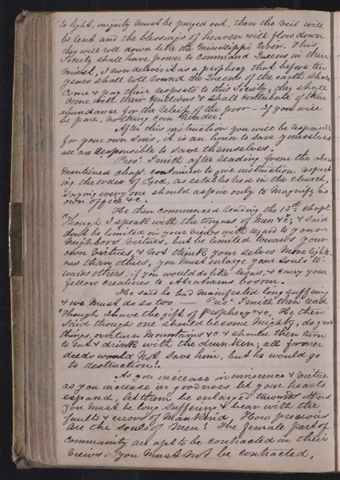 to light, iniquity must be purged out, then the veil will
be rent and the blessings of heaven will flow down
they will roll down like the Mississippi River. This
Society shall have power to command Queens in their
midst, I now deliver it as a prophecy that before ten
years shall roll round the Queens of the earth shall
come & pay their respects to this Society, they shall
come with their millions & shall contribute of their
abundance for the relief of the poor — if you will
be pure, nothing can hinder.
After this instruction you will be responsible
for your own sins, it is an honor to save yourselves
all are responsible to save themselves.
Prest Smith after reading from the above
mentioned chapt. continued to give instruction respect-
ing the order of God, as established in the church,
saying every one should aspire only to magnify his
own office &c.
He then commenced reading the 13th chapt
"Though I speak with the tongues of men" &c; & said
don't be limited in your views with regard to your
neighbors virtues, but be limited towards your
own virtues, & not think yourselves more righte-
ous than others; you must enlarge your souls to-
wards others if you would do like Jesus, & carry your
fellow creatures to Abrahams bosom.
He said he had manifested long suffering
& we must do so too — Prest Smith then read
"Though I have the gift of prophecy" &c. He then
said though one should become mighty, do great
things, overturn mountains &c & should then turn
to eat & drink with the drunken; all former
deeds would not save him, but he would go
to destruction!
As you increase in innocence & virtue
as you increase in goodness let your hearts
expand, let them be enlarged towards others
you must be long suffering & bear with the
faults & errors of mankind. How precious
are the souls of men! The female part of
community are apt to be contracted in their
views. You must not be contracted,